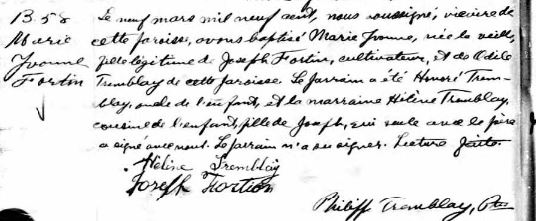 B.58
Marie
Yvonne
Fortin
Le neuf mars mil neuf cent, nous soussigné, vicaire de
cette paroisse, avons baptisé Marie Yvonne, née la veille,
fille légitime de Joseph Fortin, cultivateur, et de Odile
Tremblay de cette paroisse. Le parrain a été Honoré Trem-
blay, oncle de l'enfant, et la marraine Hélène Tremblay,
cousine de l'enfant, fille de Joseph, qui seule avec le père
a signé avec nous. Le parrain n'a su signer. Lecture faite.
Hélène Tremblay
Joseph Fortin
Philippe Tremblay, Ptre